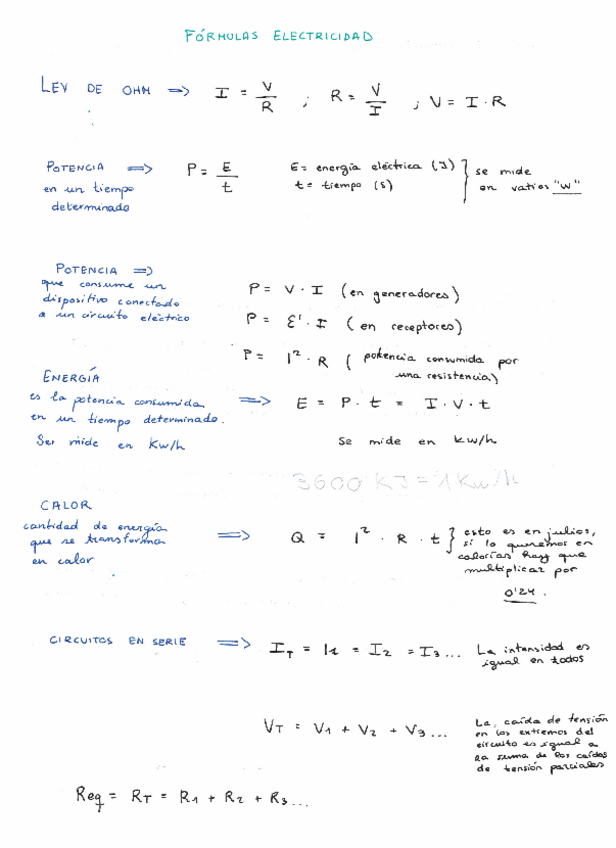 FÓRMULAS ELECTRICIDAD
LEY DE OHM => I = V/R ; R = V/I ; V = I · R
POTENCIA => P = E/t
en un tiempo
determinado
E = energía eléctrica (J)
t = tiempo (s)
se mide
en vatios "W"
POTENCIA =>
que consume un
dispositivo conectado
a un circuito eléctrico
P = V · I (en generadores)
P = Ɛ' · I (en receptores)
P = I² · R (potencia consumida por
una resistencia)
ENERGÍA
es la potencia consumida
en un tiempo determinado.
Se mide en Kw/h
=> E = P · t = I · V · t
Se mide en kw/h
3600 KJ = 1 Kw/h
CALOR
cantidad de energía
que se transforma
en calor
=> Q = I² · R · t
esto es en julios,
si lo queremos en
calorías hay que
multiplicar por
0'24.
CIRCUITOS EN SERIE => IT = I1 = I2 = I3...
La intensidad es
igual en todos
VT = V1 + V2 + V3...
La caída de tensión
en los extremos del
circuito es igual a
la suma de las caídas
de tensión parciales
Req = RT = R1 + R2 + R3...